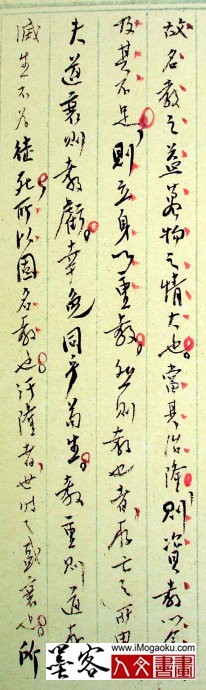 故名教之益萬物之情大也。當其治隆則資教以全
及其不足，則立身以重教。然則教也者，存亡之所由
夫道衰則教虧。幸免同乎苟生。教重則道存
滅生不為徒死。所以固名教也。汙隆者，世時之盛衰也。所
墨客
www.iMogaoku.com
人文書畫